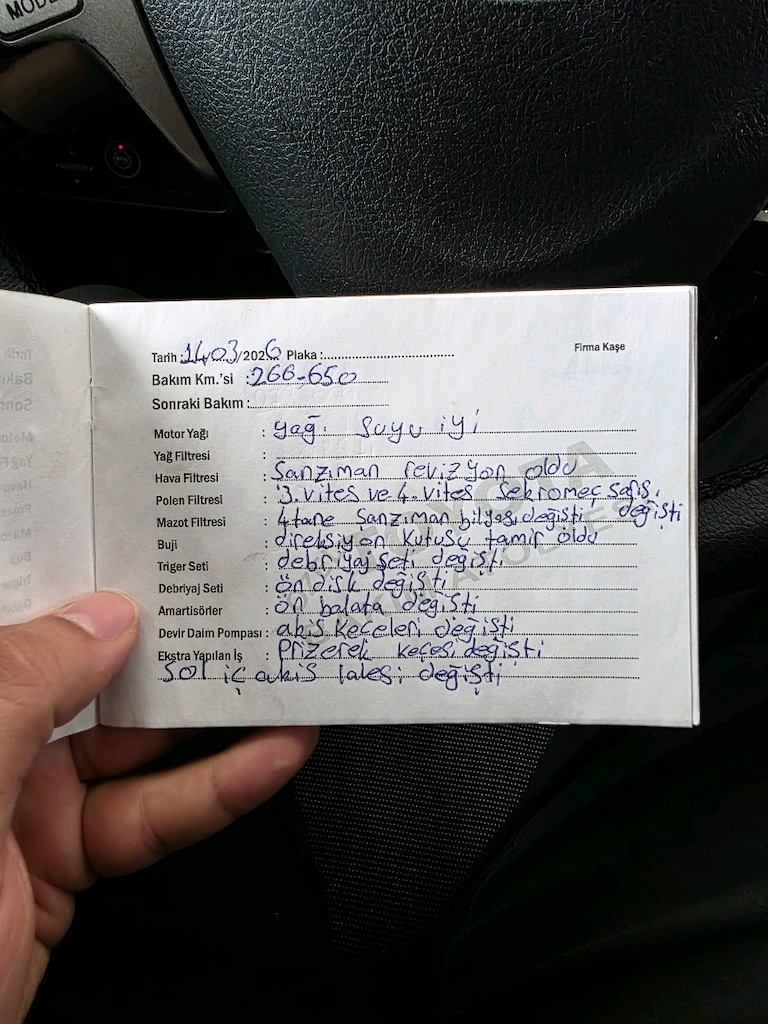 MODE
Tarih :14.03/2026 Plaka :
Firma Kaşe
Bakım Km.'si :266.650
Sonraki Bakım :
Motor Yağı : yağ. Suyu iyi
Yağ Filtresi :
Hava Filtresi : Şanzıman revizyon oldu
Polen Filtresi : 3.vites ve 4.vites Sekromec
Mazot Filtresi : 4 tane Şanzıman bilyası değişti değişti
Buji : direksiyon kutusu tamir oldu
Triger Seti : debriyaj seti değişti
Debriyaj Seti : ön disk değişti
Amartisörler : ön balata değişti
Devir Daim Pompası : akis keçeleri değişti
Ekstra Yapılan İş : Prizerek keçesi değişti
Sol iç akis lalesi değişti
TOYOTA